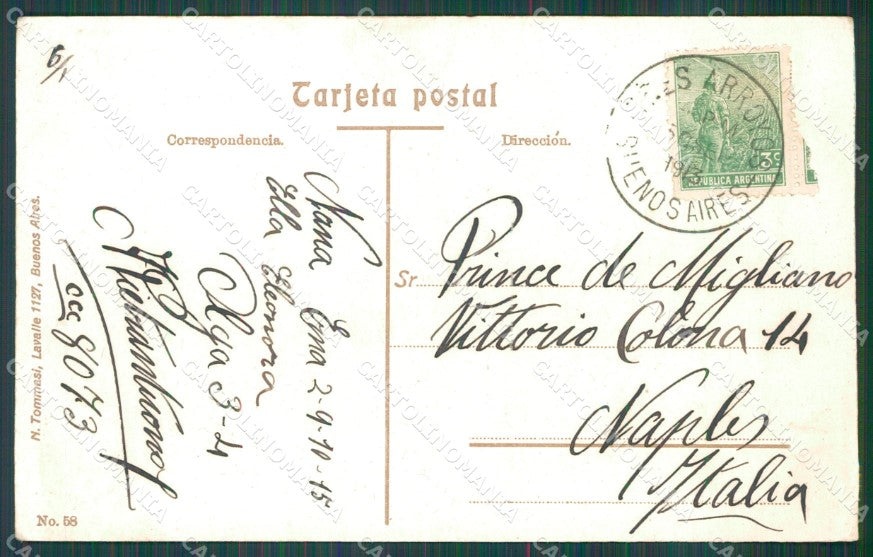 6/1
Tarjeta postal
Correspondencia.
Dirección.
3c
REPUBLICA ARGENTINA
TRES ARROYOS
BUENOS AIRES
Nana Ema 2-9-10-15
Ella Eleonora
Olga 3-4
ccc 8073
Sr
Prince de Migliano
Vittorio Colona 14
Naples
Italia
N. Tommasi, Lavalle 1127, Buenos Aires.
No. 58
CARTOLINOMANIA